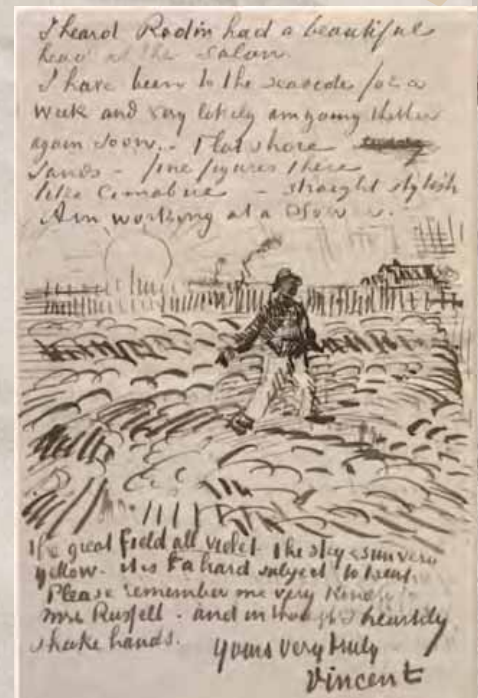 I heard Rodin had a beautiful
head at the Salon.
I have been to the seaside for a
week and very likely am going thither
again soon. - Flat shore
sands - fine figures there
like Cimabue - straight stylish
Am working at a Sower.
the great field all violet the sky & sun very
yellow. it is a hard subject to treat.
Please remember me very kindly to
mrs Russell - and in thought heartily
shake hands.
yours very truly
Vincent